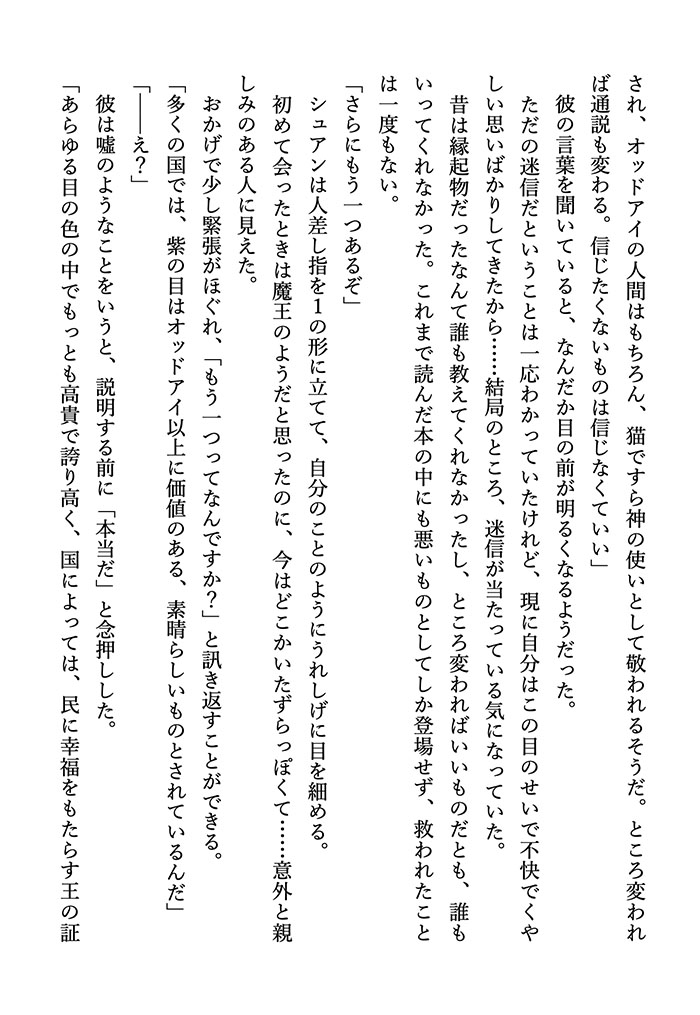 され、オッドアイの人間はもちろん、猫ですら神の使いとして敬われるそうだ。ところ変われ
ば通説も変わる。信じたくないものは信じなくていい」
彼の言葉を聞いていると、なんだか目の前が明るくなるようだった。
ただの迷信だということは一応わかっていたけれど、現に自分はこの目のせいで不快でくや
しい思いばかりしてきたから……結局のところ、迷信が当たっている気になっていた。
昔は縁起物だったなんて誰も教えてくれなかったし、ところ変わればいいものだとも、誰も
いってくれなかった。これまで読んだ本の中にも悪いものとしてしか登場せず、救われたこと
は一度もない。
「さらにもう一つあるぞ」
シュアンは人差し指を１の形に立てて、自分のことのようにうれしげに目を細める。
初めて会ったときは魔王のようだと思ったのに、今はどこかいたずらっぽくて……意外と親
しみのある人に見えた。
おかげで少し緊張がほぐれ、「もう一つってなんですか？」と訊き返すことができる。
「多くの国では、紫の目はオッドアイ以上に価値のある、素晴らしいものとされているんだ」
「――え？」
彼は嘘のようなことをいうと、説明する前に「本当だ」と念押しした。
「あらゆる目の色の中でもっとも高貴で誇り高く、国によっては、民に幸福をもたらす王の証